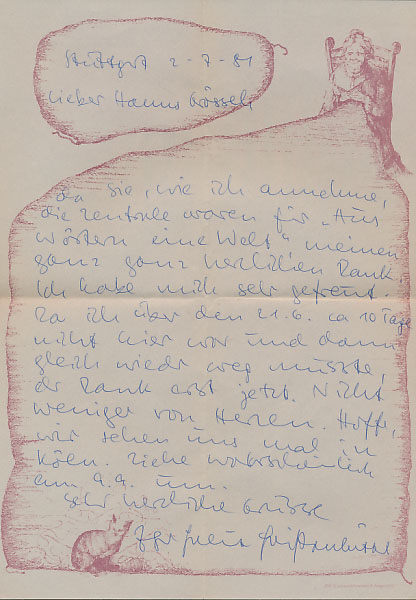 Stuttgart 2-7-81
Lieber Hanns Grössel,
da Sie, wie ich annehme,
die Zentrale waren für "Aus
Wörtern eine Welt", meinen
ganz ganz herzlichen Dank.
Ich habe mich sehr gefreut.
Da ich über den 21.6. ca 10 Tage
nicht hier war und dann
gleich wieder weg musste,
der Dank erst jetzt. Nicht
weniger von Herzen. Hoffe,
wir sehen uns mal in
Köln. Ziehe wahrscheinlich
am 9.9. um.
Sehr herzliche Grüsse
Ihr